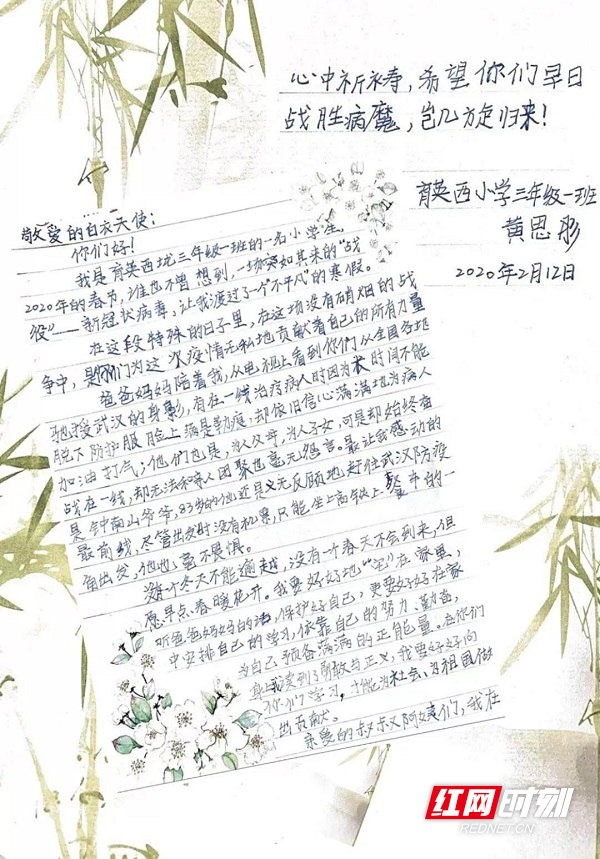 敬爱的白衣天使：
你们好！
我是育英西垅三年级一班的一名小学生。
2020年的春节，谁也不曾想到，一场突如其来的“战
役”——新冠状病毒，让我渡过了个“不平凡”的寒假。
在这段特殊的日子里，在这场没有硝烟的战
争中，是你们为这次疫情无私地贡献着自己的所有力量
爸爸妈妈陪着我，从电视上看到你们从全国各地
驰援武汉的身影，有在一线治疗病人时因为长时间不能
脱下防护服脸上满是勒痕，却依旧信心满满地为病人
加油打气；他们也是，为人父母，为人子女，可是却始终奋
战在一线，却无法和家人团聚也毫无怨言。最让我感动的
是钟南山爷爷，83岁的他还是义无反顾地赶往武汉防疫
最前线，尽管出发时没有机票，只能坐上高铁上餐车的一
角出发，他也毫不畏惧。
没有一个冬天不能逾越，没有一个春天不会到来，但
愿早点春暖花开。我要好好地“宅”在家里，
听爸爸妈妈的话，保护好自己，更要好好在家
中安排自己的学习，依靠自己的努力、勤奋，
为自己预备满满的正能量。在你们
身上我读到了勇敢与正义，我要好好向
你们学习，才能为社会、为祖国做
出贡献。
亲爱的叔叔阿姨们，我在
心中祈祷，希望你们早日
战胜病魔，凯旋归来！
育英西小学三年级一班
黄思彤
2020年2月12日
红网时刻
REDNET.CN